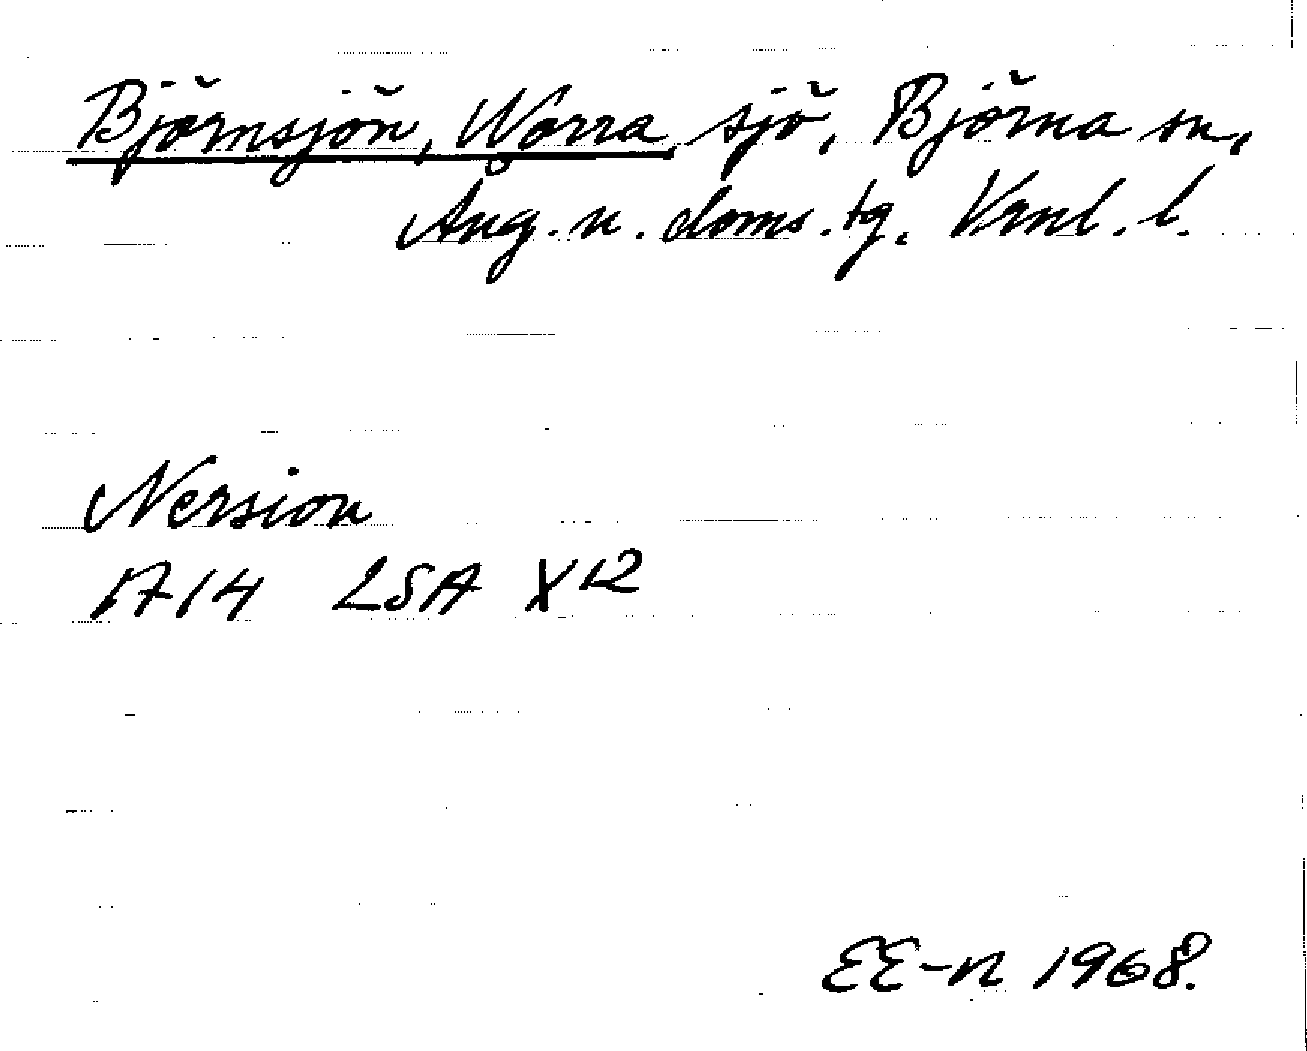 Björnsjön, Norra sjö, Björna sn,
Ång. n. doms. tg. Vrnl. l.
Nersion
1714 LSA X12
EE-n 1968.